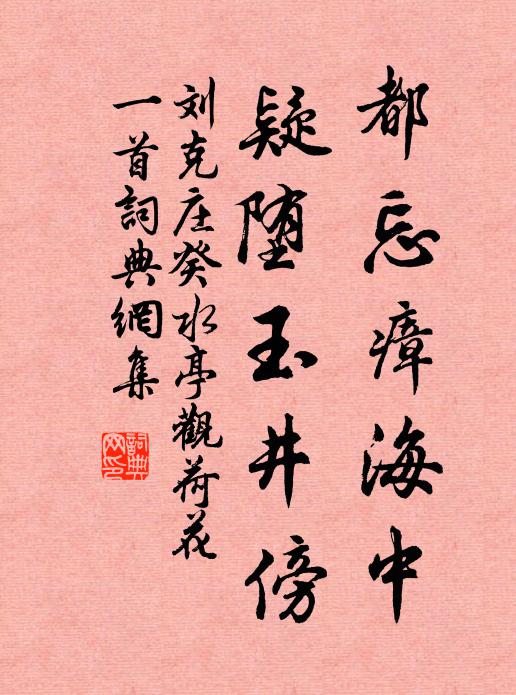 都忘瘴海中
疑堕玉井傍
刘克庄癸水亭觀荷花
一首詞典網集
詞典网印